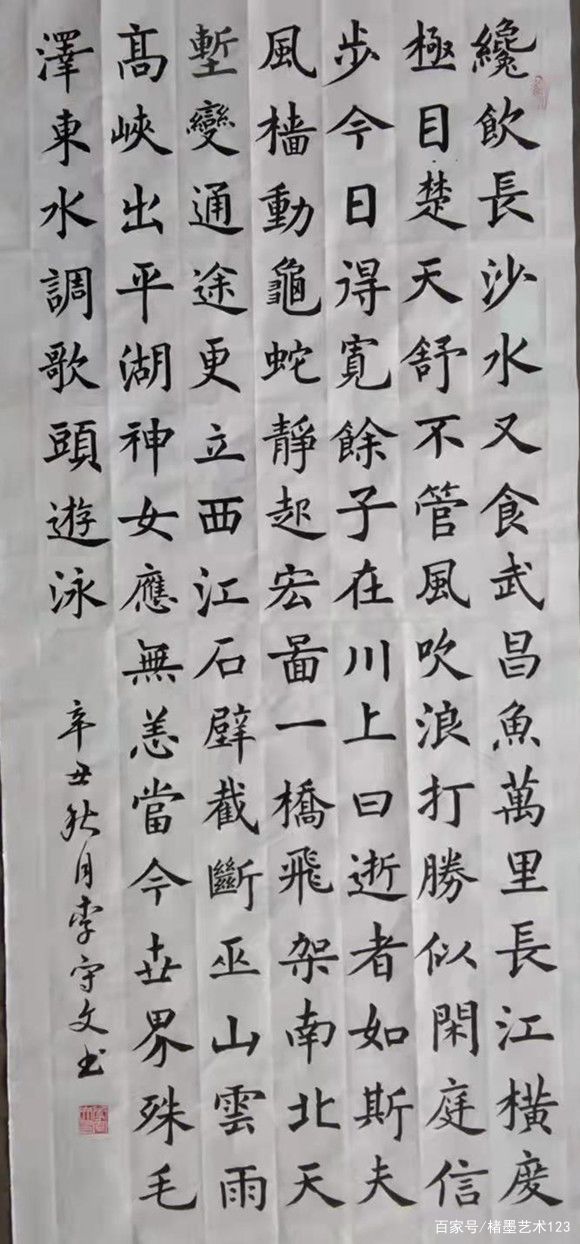 纔飲長沙水又食武昌魚萬里長江橫度
極目楚天舒不管風吹浪打勝似閑庭信
步今日得寬餘子在川上曰逝者如斯夫
風檣動龜蛇靜起宏啚一橋飛架南北天
塹變通途更立西江石壁截斷巫山雲雨
髙峽出平湖神女應無恙當今世界殊毛
澤東水調歌頭遊泳
辛丑秋月李守文书
百家号/楮墨艺术123